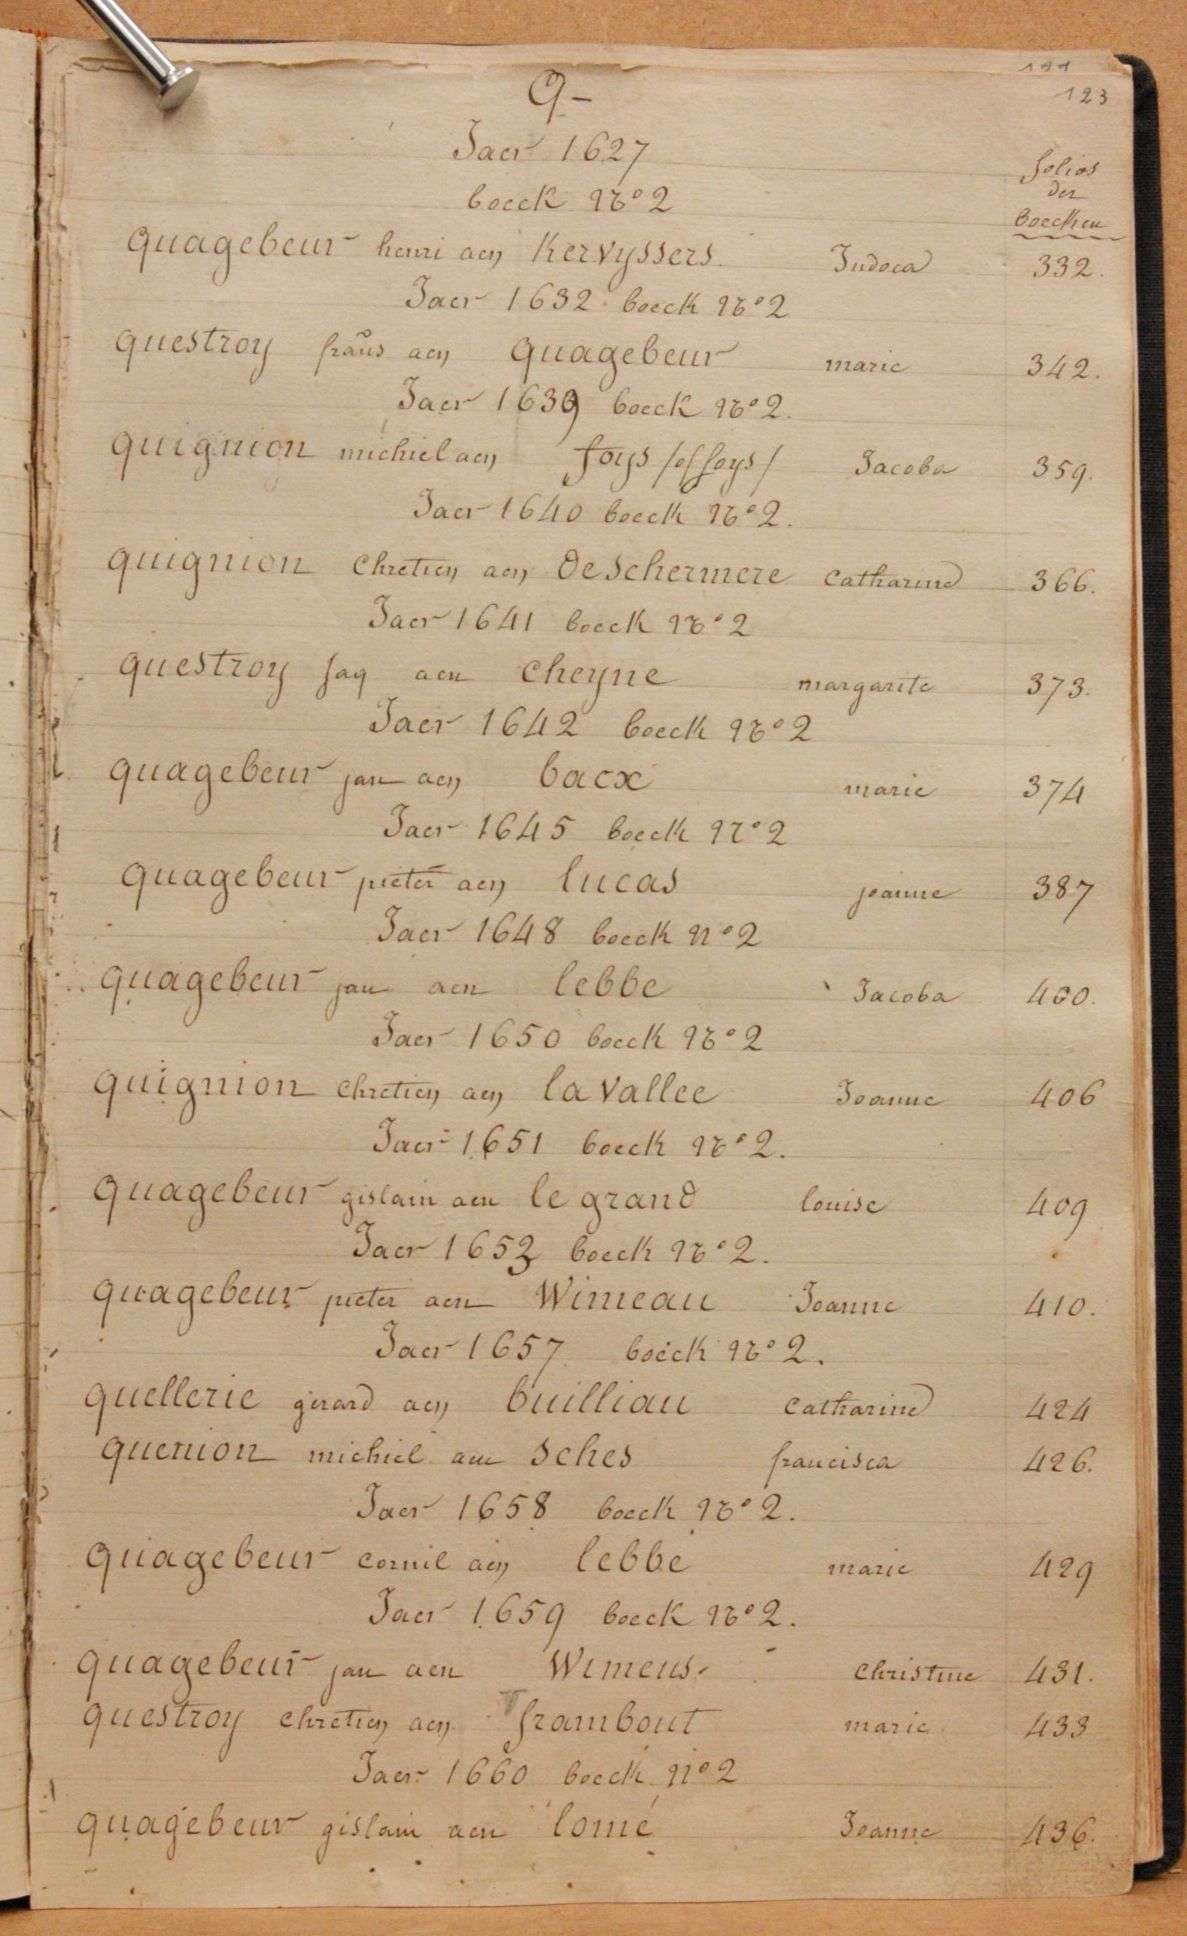 Q-
123
Jaer 1627
folios
der
boecken
boeck No 2
quagebeur henri aen Kervyssers. Judoca 332.
Jaer 1632 boeck No 2
questroy frans aen quagebeur marie 342.
Jaer 1639 boeck No 2.
quignion michiel aen foys /of soys/ Jacoba 359.
Jaer 1640 boeck No 2.
quignion chretien aen deschermere catharine 366.
Jaer 1641 boeck No 2
questroy jaq aen cheyne margarite 373.
Jaer 1642 boeck No 2
quagebeur jan aen bacx marie 374
Jaer 1645 boeck No 2
quagebeur pieter aen lucas joanne 387
Jaer 1648 boeck No 2
quagebeur jan aen lebbe Jacoba 400.
Jaer 1650 boeck No 2
quignion chretien aen la vallee Joanne 406
Jaer 1651 boeck No 2.
quagebeur gislain aen le grand louise 409
Jaer 1653 boeck No 2.
quagebeur pieter aen Wimeau Joanne 410.
Jaer 1657 boeck No 2.
quellerie girard aen builliau catharine 424
quenion michiel aen sches francisca 426.
Jaer 1658 boeck No 2.
quagebeur cornil aen lebbe marie 429
Jaer 1659 boeck No 2.
quagebeur jan aen Wimeus christine 431.
questroy chretien aen frambout marie 433
Jaer 1660 boeck No 2
quagebeur gislain aen lomé Joanne 436.